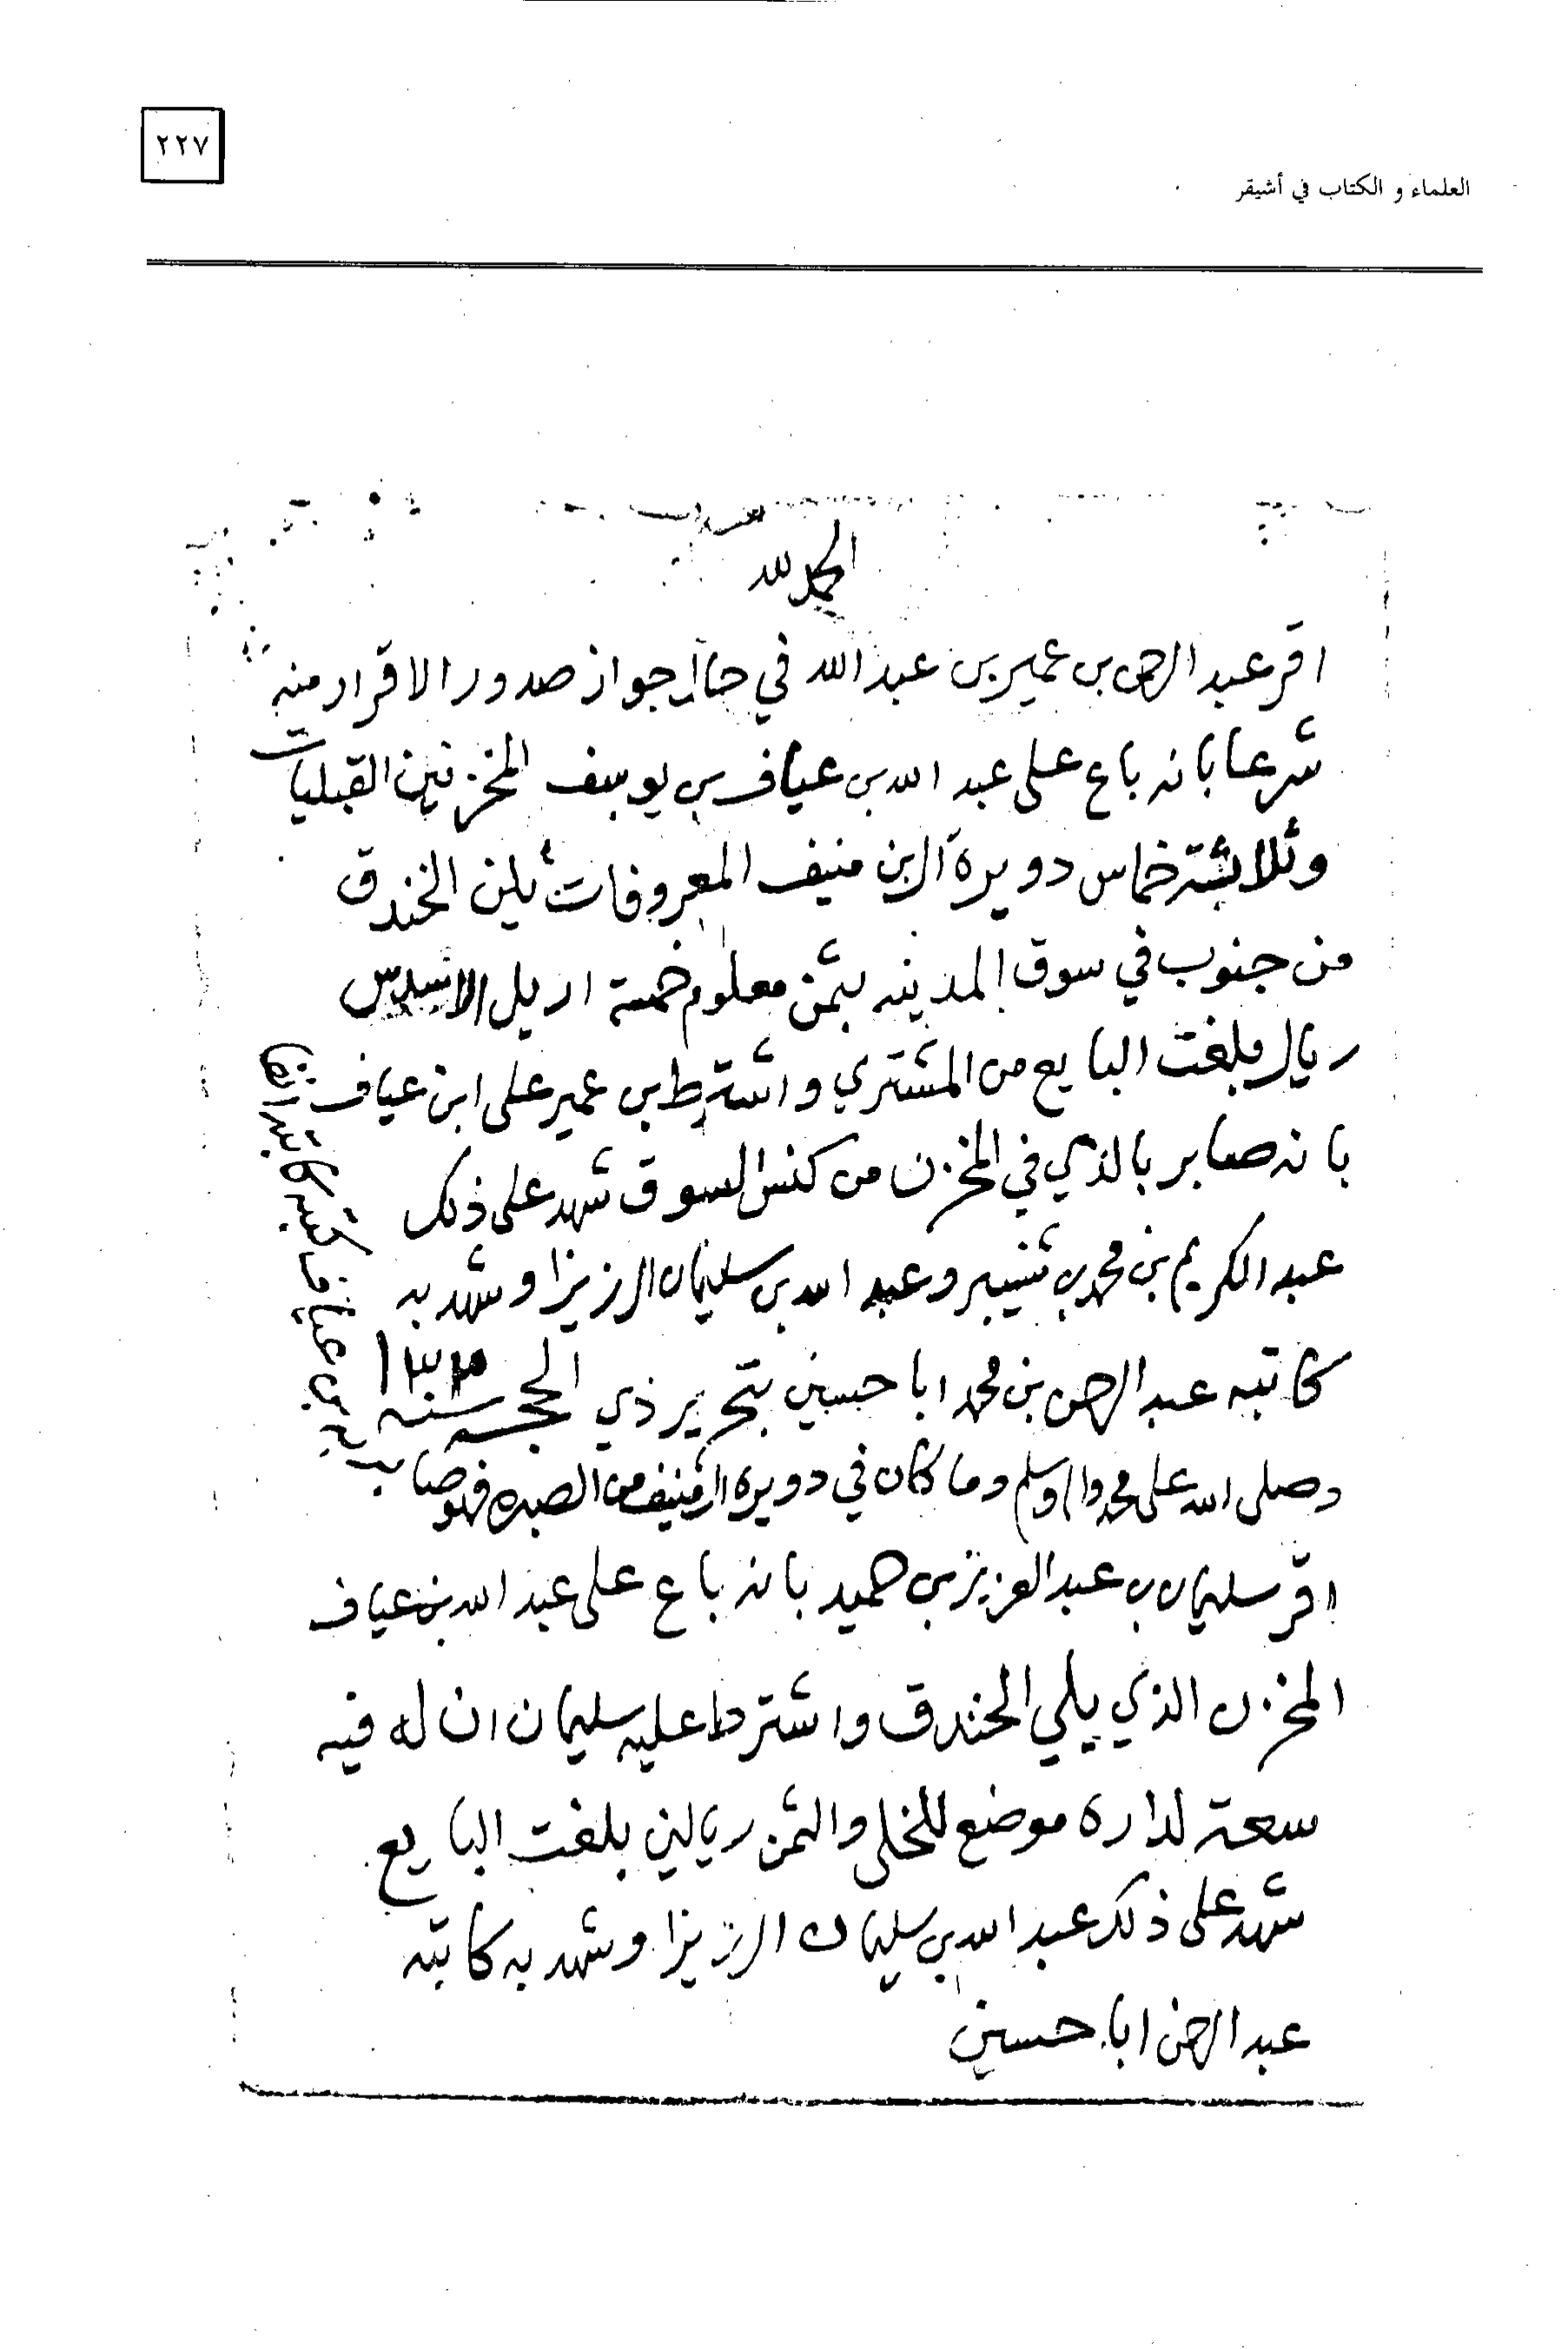 ٢٢٧
العلماء و الكتاب في أشيقر
الحمد لله
اقر عبد الرحمن بن عمير بن عبد الله في حال جواز صدور الاقرار منه
شرعا بانه باع على عبد الله بن عياف بن يوسف المخزنين القبليات
وثلاثة خماس دويرة آل بن منيف المعروفات يلين الخندق
من جنوب في سوق المدينه بثمن معلوم خمسة اريل الا سدس
ريال بلغت البايع من المشتري واشترط بن عمير على ابن عياف
بانه صابر بالذي في المخزن من كنس السوق شهد على ذلك
عبد الكريم بن محمد بن شنيبر وعبد الله بن سليمان الرزيزا وشهد به
كاتبه عبد الرحمن بن محمد ابا حسين بتحرير ذي الحجه سنه
وصلى الله على محمد واله وسلم وما كان في دويرة ال منيف من الصبره فهو صابر
به بن عياف كتبه كاتبه
اقر سليمان بن عبد العزيز بن حميد بانه باع على عبد الله بن عياف
المخزن الذي يلي الخندق واشترط عليه سليمان ان له فيه
سعة لداره موضع للخلى والثمن ريالين بلغت البايع
شهد على ذلك عبد الله بن سليمان الرزيزا وشهد به كاتبه
عبد الرحمن ابا حسين